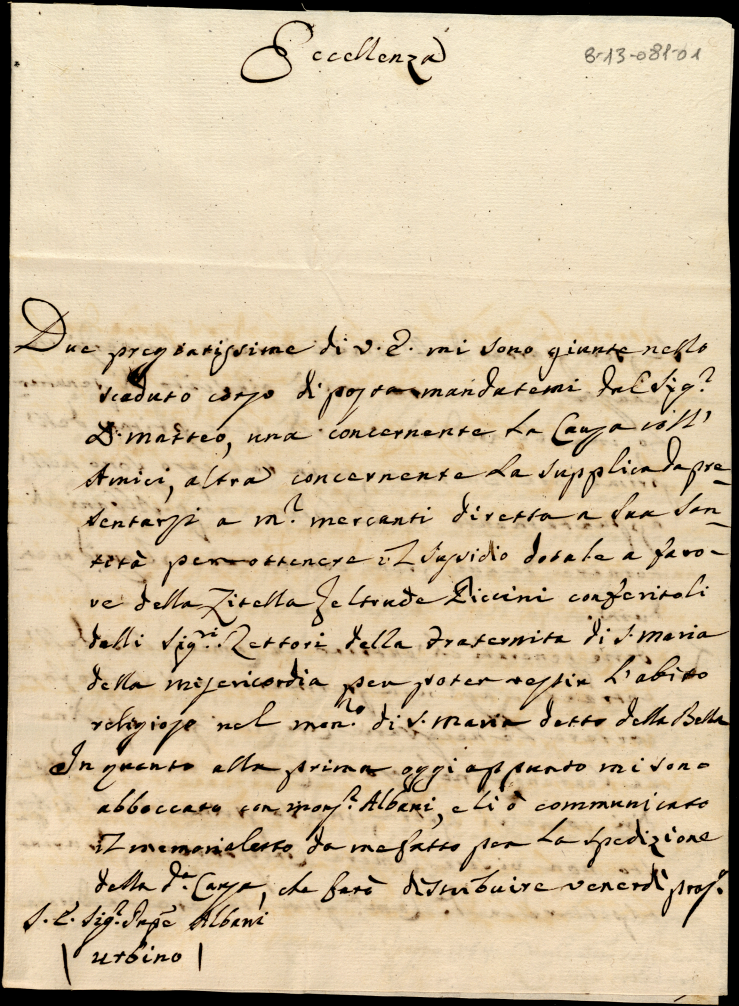 Eccellenza
8-13-081-01
Due pregiatissime di V. E. mi sono giunte nello
scaduto corso di posta mandatemi dal Sig.r
D. Matteo, una concernente la Causa coll'
Amici, altra concernente la supplica da pre-
sentarsi a M.r Mercanti diretta a Sua San-
tità per ottenere il susidio dotale a favo-
re della Zitella Geltrude Piccini conferitoli
delli Sig.ri Rettori della Fraternita di S. Maria
della Misericordia per poter vestir l'abito
religioso nel Mon.ro di S. Maria detto della Bella
In quanto alla prima oggi appunto mi sono
abboccato con Mons.r Albani, e li ò communicato
il memorialetto da me fatto per la spedizione
della d.a Causa, che farò distribuire venerdì pros.o
S. E. Sig.r Albani
Urbino